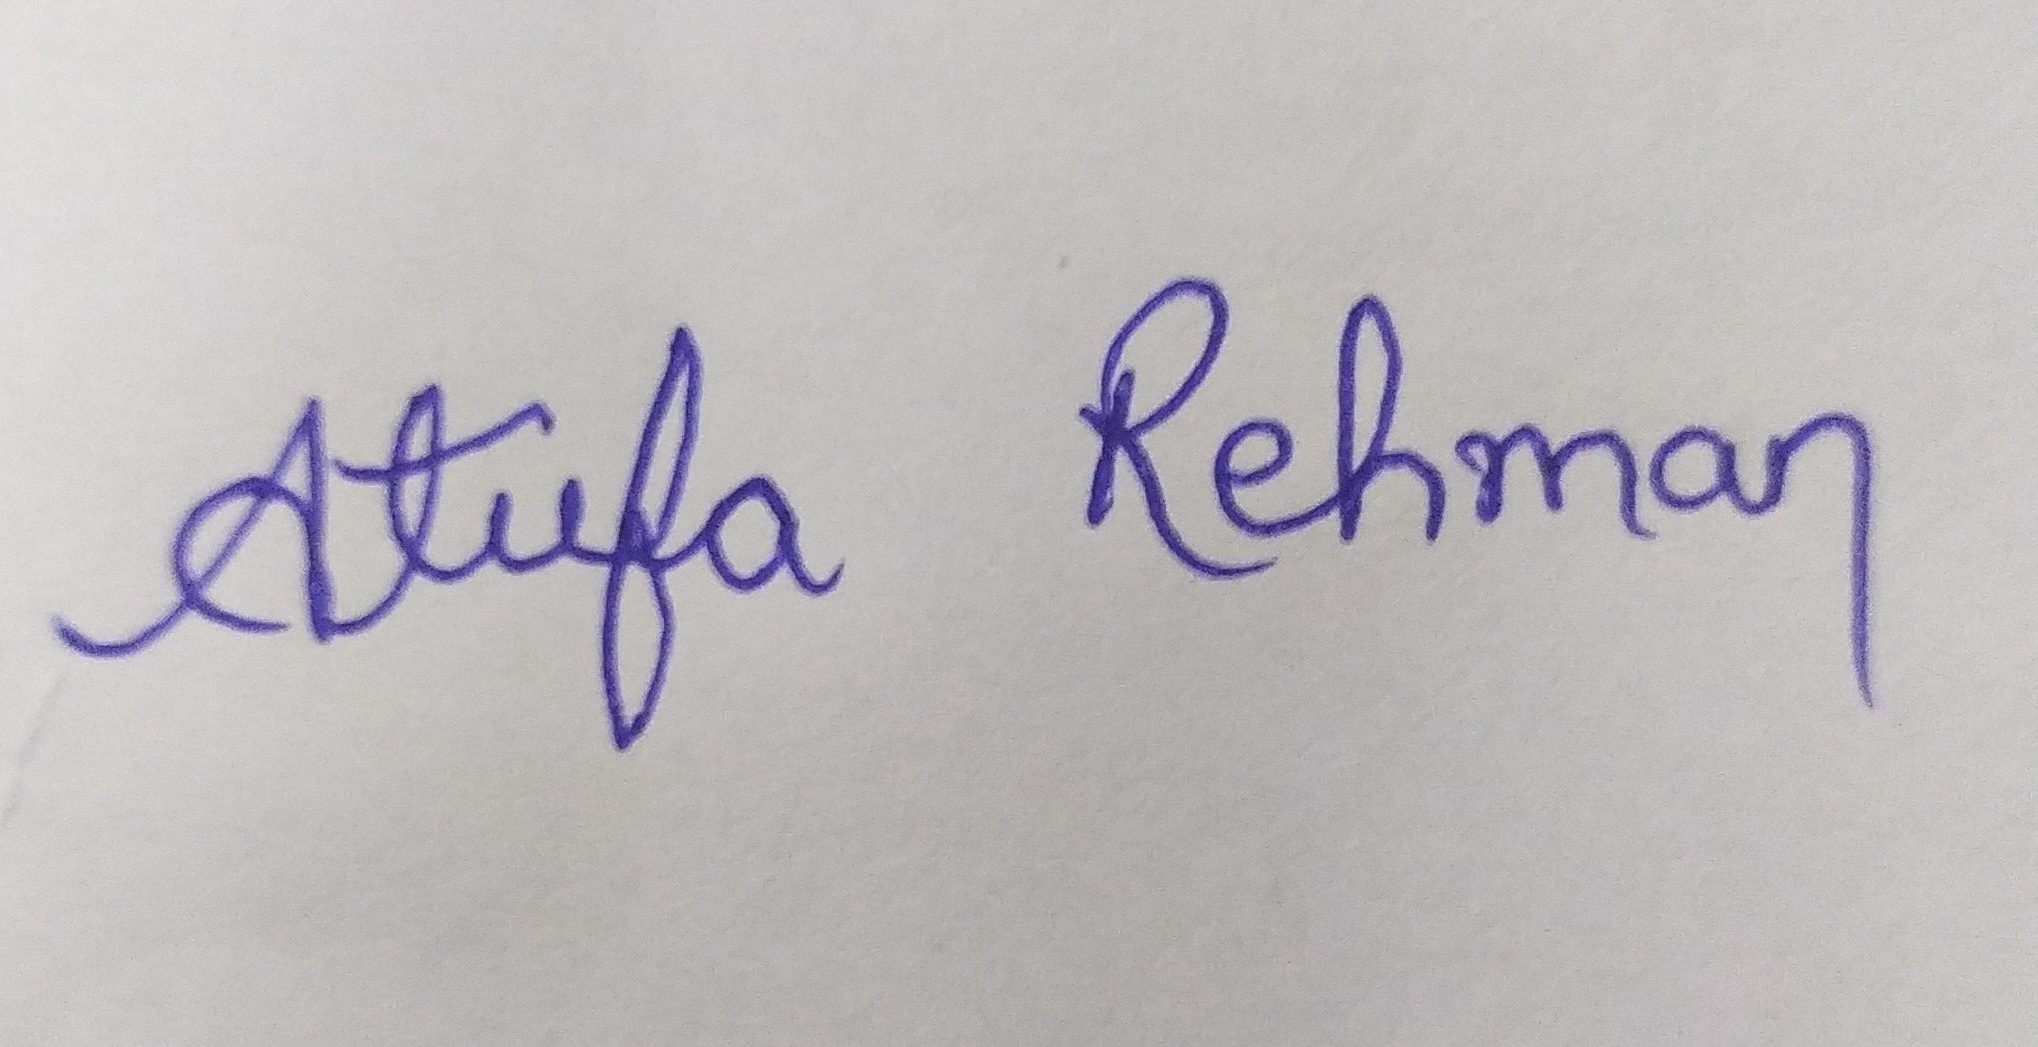 Atufa Rehman